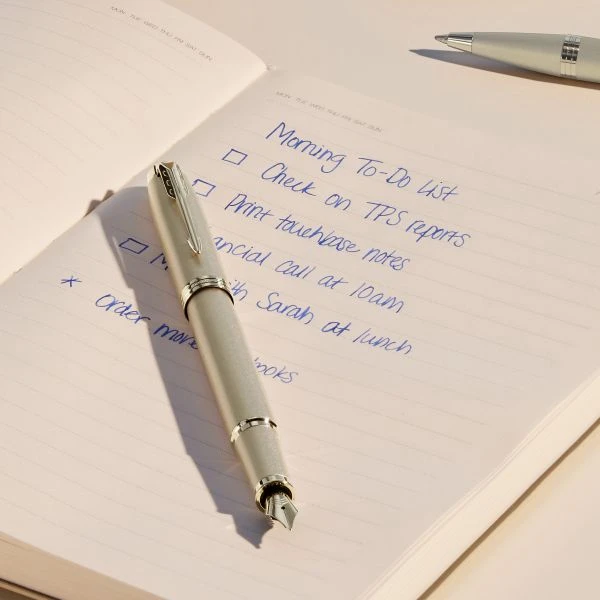 MON TUE WED THU FRI SAT SUN
MON TUE WED THU FRI SAT SUN
Morning To-Do List
Check on TPS reports
Print touchbase notes
ancial call at 10am
ith Sarah at lunch
* Order more